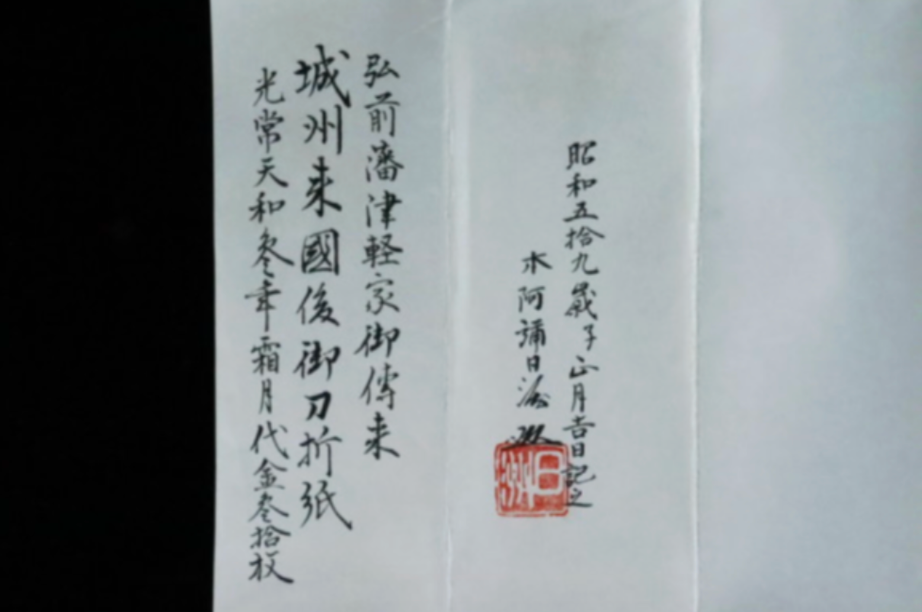 昭和五拾九歳子正月吉日記之
本阿彌日洲
日洲
弘前藩津軽家御傳来
城州来國俊御刀折紙
光常天和参年霜月代金参拾枚